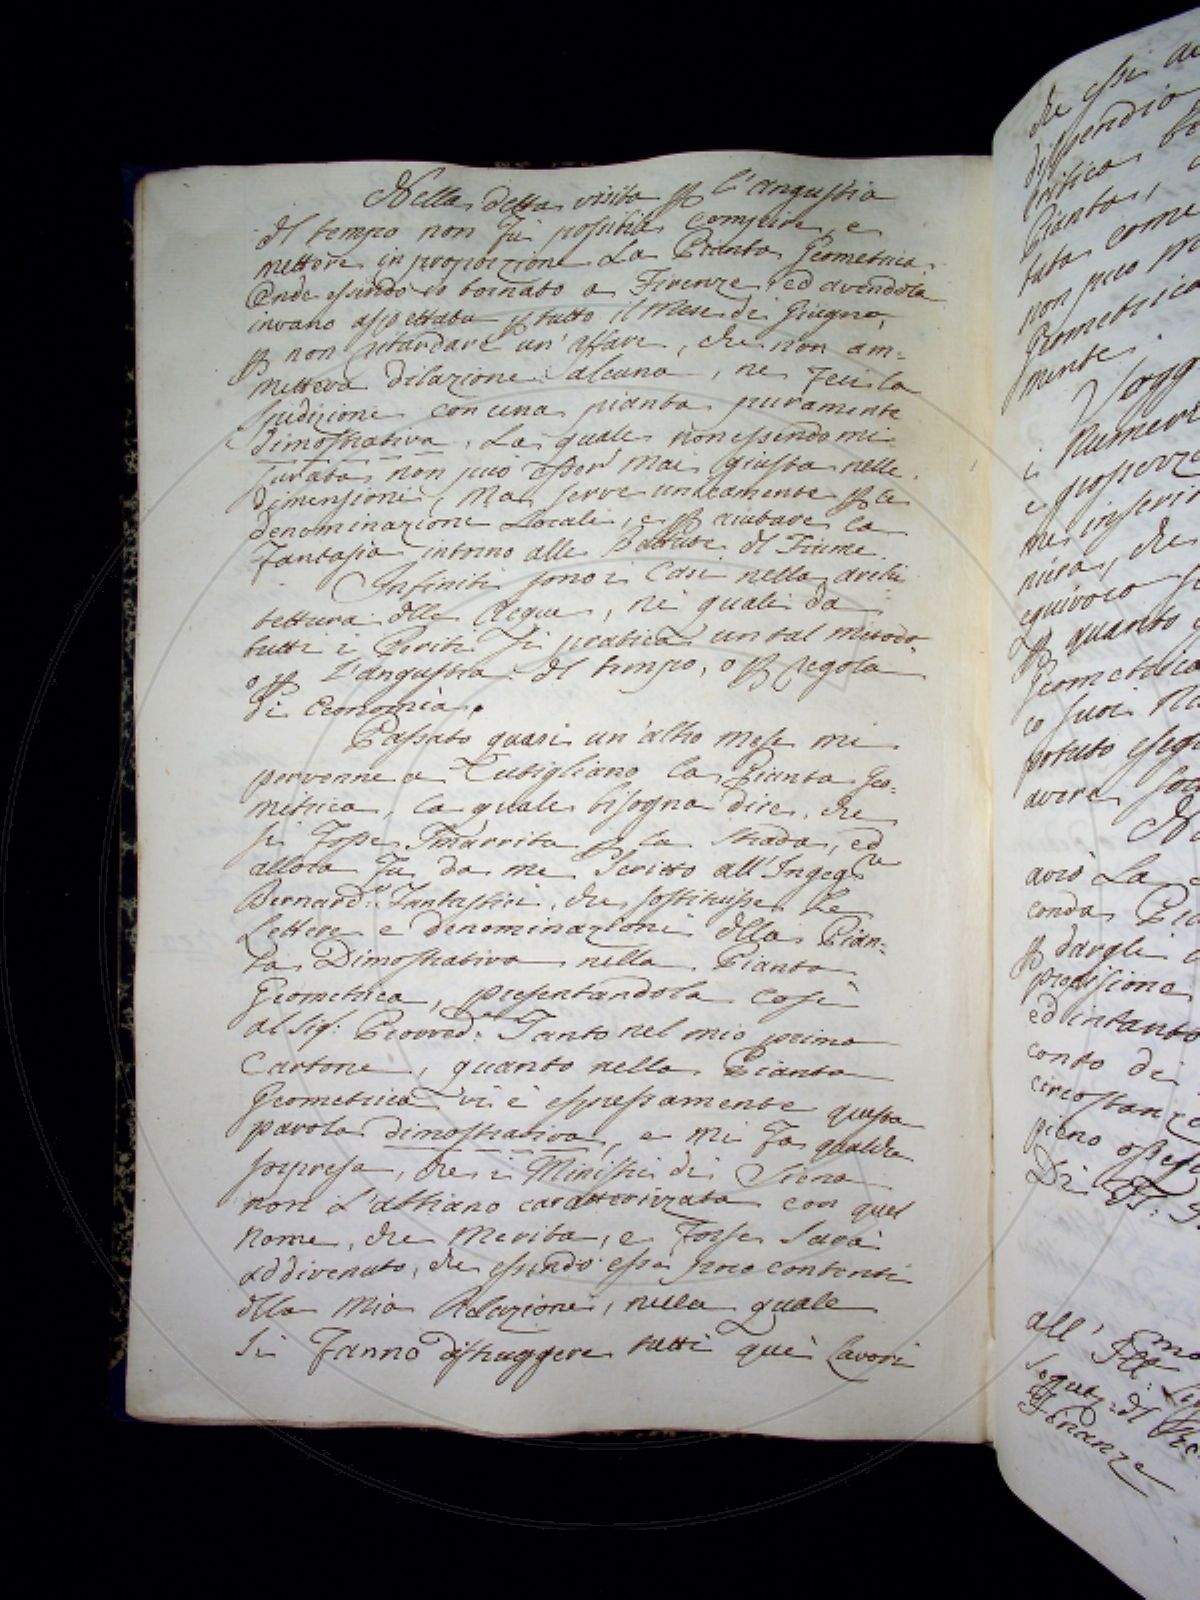 Nella detta visita p l'angustia
del tempo non fu possibile compire, e
mettere in proporzione La Pianta Geometrica.
Onde essendo io tornato a Firenze, ed avendola
invano aspettata p tutto il Mese di Giugno,
p non ritardare un' affare, che non am-
metteva dilazione alcuna, ne feci la
spedizione con una pianta puramente
dimostrativa. La quale non essendo mi-
surata non può esser mai giusta nelle
dimensioni, ma serve unicamente p le
denominazione Locali, e p aiutare la
fantasia intorno alle Battute del Fiume.
Infiniti sono i Casi nella archi
tettura delle Acque, nei quali da
tutti i Periti si pratica un tal metodo
o p L'angustia del tempo, o p regola
di Economia.
Passato quasi un' altro mese mi
pervenne a Cutigliano la Pianta Geo-
metrica, la quale bisogna dire, che
si fosse smarrita p la strada, ed
allora fu da me scritto all' Ingeg.re
Bernard.o Fantastici, che sostituisse Le
Lettere e denominazioni della Pian-
ta Dimostrativa nella Pianta
Geometrica, presentandola così
al Sig.r Provved.re Tanto nel mio primo
Cartone, quanto nella Pianta
Geometrica vi è espressamente questa
parola dimostrativa, e mi fa qualche
sorpresa, che i Ministri di Siena
non L'abbiano caratterizzata con quel
Nome, che Merita, e forse sarà
addivenuto, che essendo essi poco contenti
della mia Relazione, nella quale
si fanno distruggere tutti quei Lavori
che essi
dispendio
critica
Pianta,
tata come
non può
Geometrica
mente.
Sogg
i Numeri
e grossezze
me inserir
niera, che
equivoco
p quanto
Geometrica
co suoi
potuto eseg
avere
conda
p dargli
precisione
ed intanto
conto dei
circostanze
pieno
all' Ill:mo
Finanze